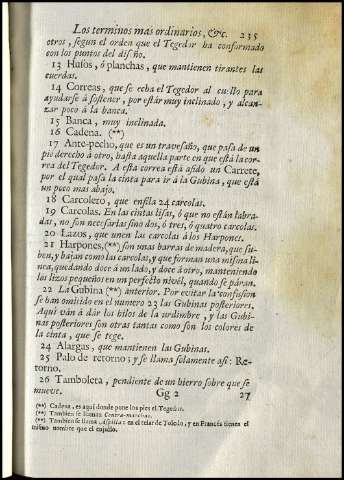 Los terminos mas ordinarios, &c. 235
otros, segun el orden que el Tegedor ha conformado
con los puntos del diseño.
13 Husos, ó planchas, que mantienen tirantes las
cuerdas.
14 Correas, que se echa el Tegedor al cuello para
ayudarse á sostener, por estár muy inclinado, y alcan-
zar poco á la banca.
15 Banca, muy inclinada.
16 Cadena. (**)
17 Ante-pecho, que es un travesaño, que pasa de un
pie derecho á otro, hasta aquella parte en que está la cor-
rea del Tegedor. A esta correa está asido un Carrete,
por el qual pasa la cinta para ir á la Gubina, que está
un poco mas abajo.
18 Carcolero, que ensila 24 carcolas.
19 Carcolas. En las cintas lisas, ó que no están labra-
das, no son necesarias sino dos, ó tres, ó quatro carcolas.
20 Lazos, que unen las carcolas á los Harpones.
21 Harpones, (**) son unas barras de madera, que su-
ben, y bajan como las carcolas, y que forman una misma li-
nea, quedando doce á un lado, y doce á otro, manteniendo
los lizos pequeños en un perfecto nivél, quando se páran.
22 La Gubina (**) anterior. Por evitar la confusion
se ban omitido en el numero 23 las Gubinas posteriores.
Aqui ván á dár los hilos de la urdimbre, y las Gubi-
nas posteriores son otras tantas como son los colores de
la cinta, que se tege.
24 Alargas, que mantienen las Gubinas.
25 Palo de retorno; y se llama solamente asi: Re-
torno.
26 Tamboleta, pendiente de un hierro sobre que se
mueve.
Gg 2 27
(**) Cadena, es aqui donde pone los pies el Tegedor.
(**) Tambien se llaman Contra-marchas.
(**) Tambien se llama en el telar de Toledo, y en Francés tienen el
mismo nombre que el enjullo.